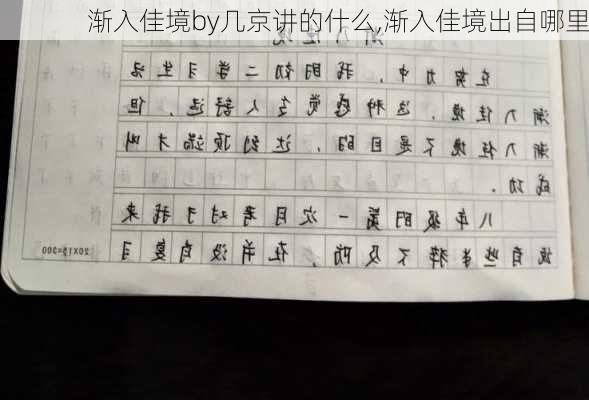 渐入佳境by几京讲的什么,渐入佳境出自哪里
渐入佳境
在努力中，我的初二学习生活
渐入佳境，这种感觉令人舒适，但
渐入佳境不是目的，达到顶端才叫
成功。
八年级的第一次月考对于我来
说有些猝不及防，在并没有复习
20X15=300